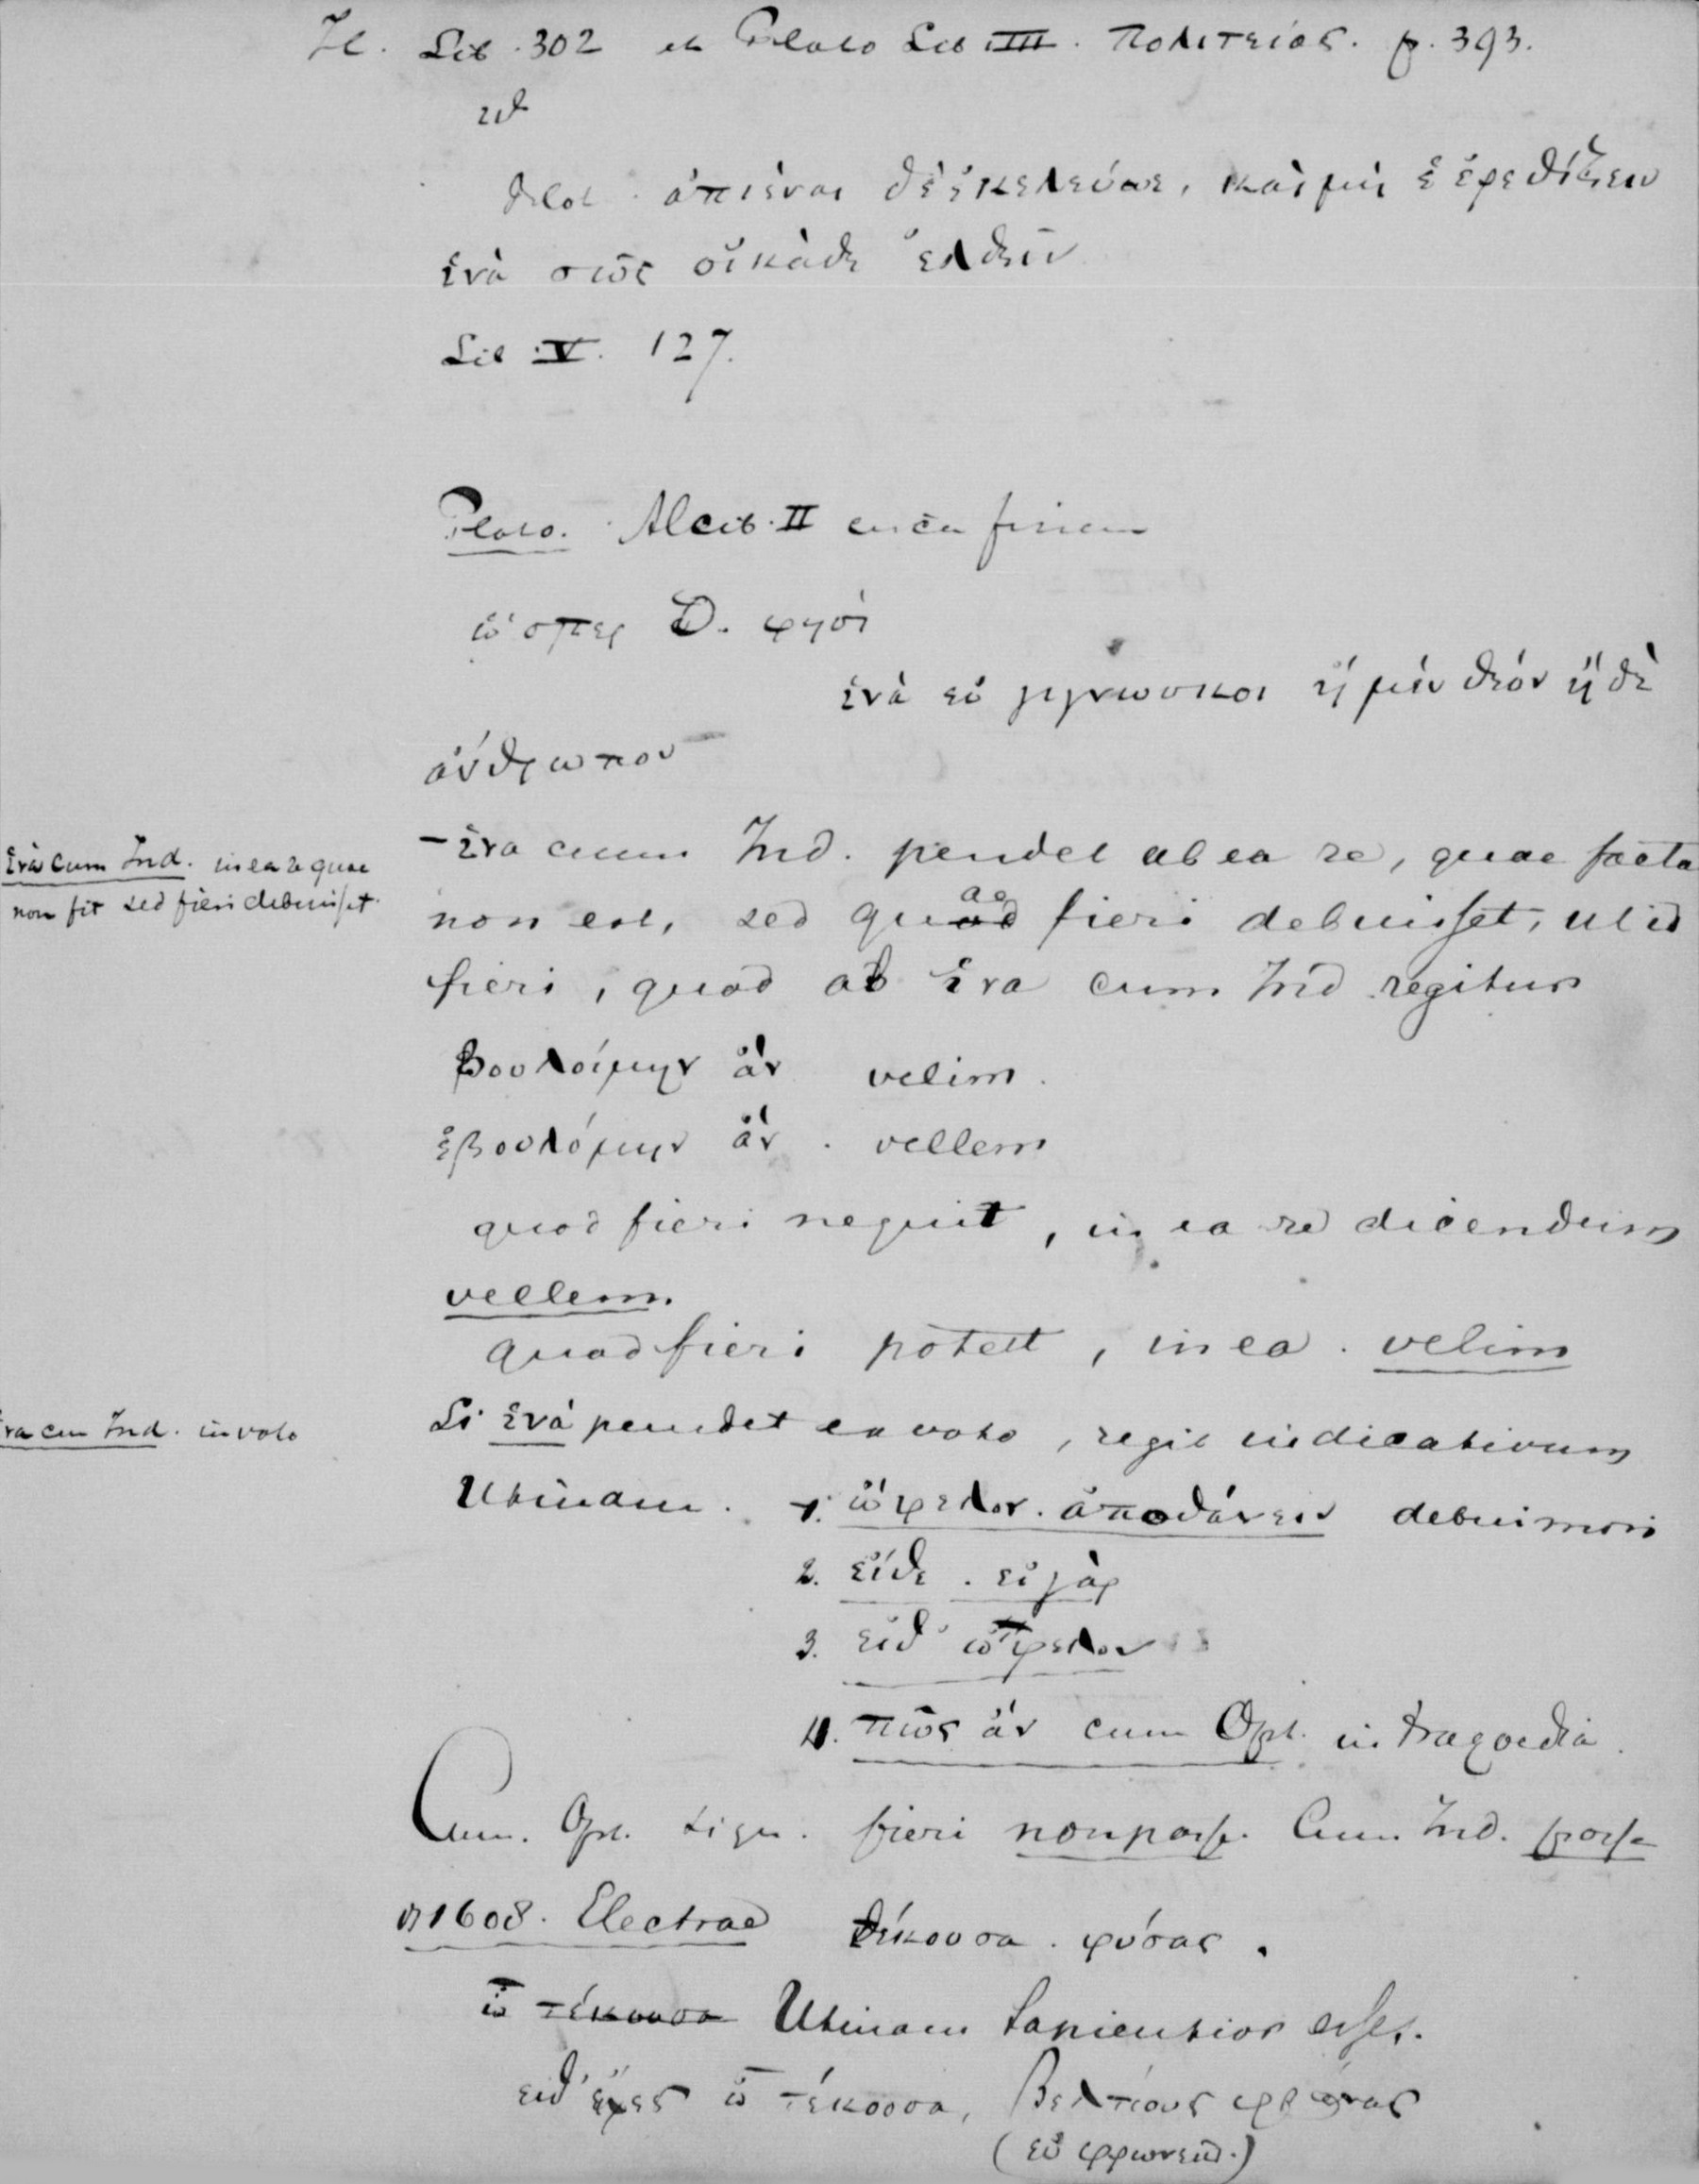 Il. Lib. 302 et Plato Lib III. Πολιτείας. p. 393.
ubi
ἀπιέναι δὲ ἐκέλευσε, καὶ μὴ ἐρεθίζειν
ἵνα σῶς οἴκαδε ἐλθεῖν
Lib. V. 127.
Plato. Alcib. II circa finem
ὥσπερ D. φησί
ἵνα εὖ γιγνώσκοι ἤ μὲν θεόν ἤ δὲ
ἄνθρωπον
- ἵνα cum Ind. pendet ab ea re, quae facta
ἵνα cum Ind. in ea re quae
non fit sed fieri debuisset.
non est, sed quae fieri debuisset, ut id
fieri, quod ab ἵνα cum Ind regitur
βουλοίμην ἄν velim.
ἐβουλόμην ἄν. vellem
quod fieri nequit, in ea re dicendum
vellem.
quod fieri potest, in ea. velim
ἵνα cum Ind. in voto
Si ἵνα pendet ex voto, regit indicativum
Utinam. 1. ὤφελον. ἀποθάνειν debui mori
2. εἴθε. εἰ γὰρ
3. εἴθ' ὤφελον
4. πῶς ἄν cum Opt. in tragoedia.
Cum. Opt. sign. fieri non posse. Cum Ind. posse
v 1608. Electrae τέκουσα. φύσας.
ὦ τέκουσα Utinam sapientior esses.
εἴθ' εἶχες ὦ τέκουσα, βελτίους φρένας
(εὖ φρωνεῖν.)